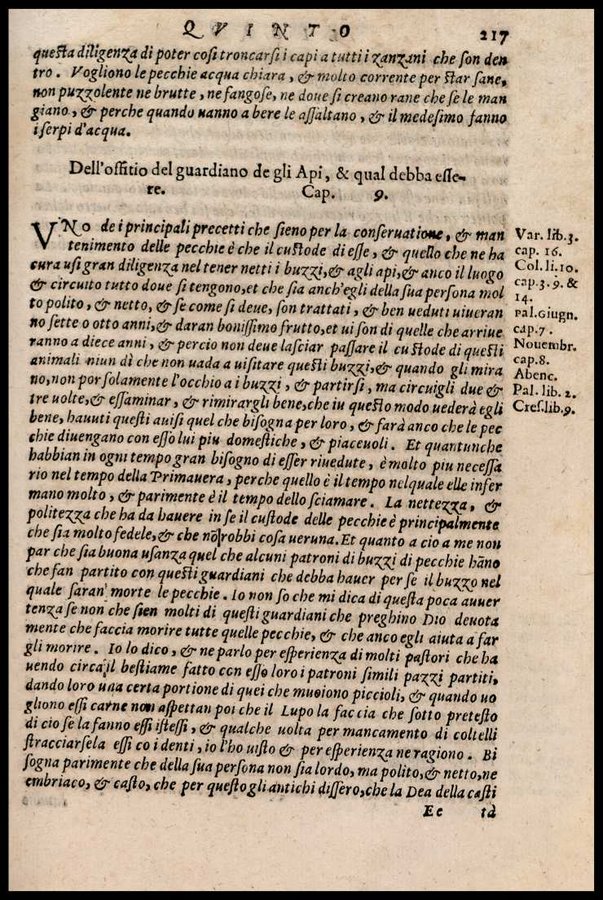 QVINTO 217
questa diligenza di poter cosi troncarsi i capi a tutti i zanzani che son den
tro. Vogliono le pecchie acqua chiara, & molto corrente per star sane,
non puzzolente ne brutte, ne fangose, ne doue si creano rane che se le man
giano, & perche quando uanno a bere le assaltano, & il medesimo fanno
i serpi d'acqua.
Dell'offitio del guardiano de gli Api, & qual debba esse-
re. Cap. 9.
VNo de i principali precetti che sieno per la conseruatione, & man
tenimento delle pecchie è che il custode di esse, & quello che ne ha
cura usi gran diligenza nel tener netti i buzzi, & agli api, & anco il luogo
& circuito tutto doue si tengono, et che sia anch'egli della sua persona mol
to polito, & netto, & se come si deue, son trattati, & ben ueduti uiueran
no sette o otto anni, & daran bonissimo frutto, et ui son di quelle che arriue
ranno a diece anni, & percio non deue lasciar passare il custode di questi
animali niun dì che non uada a uisitare questi buzzi, & quando gli mira
no, non por solamente l'occhio a i buzzi, & partirsi, ma circuigli due &
tre uolte, & essaminar, & rimirargli bene, che iu questo modo uederà egli
bene, hauuti questi auisi quel che bisogna per loro, & farà anco che le pec
chie diuengano con esso lui piu domestiche, & piaceuoli. Et quantunche
habbian in ogni tempo gran bisogno di esser riuedute, è molto piu necessa
rio nel tempo della Primauera, perche quello è il tempo nelquale elle infer
mano molto, & parimente è il tempo dello sciamare. La nettezza, &
politezza che ha da hauere in se il custode delle pecchie è principalmente
che sia molto fedele, & che nō robbi cosa ueruna. Et quanto a cio a me non
par che sia buona usanza quel che alcuni patroni di buzzi di pecchie hāno
che fan partito con questi guardiani che debba hauer per se il buzzo nel
quale saran' morte le pecchie. Io non so che mi dica di questa poca auuer
tenza se non che sien molti di questi guardiani che preghino Dio deuota
mente che faccia morire tutte quelle pecchie, & che anco egli aiuta a far
gli morire. Io lo dico, & ne parlo per esperienza di molti pastori che ha
uendo circa il bestiame fatto con esso loro i patroni simili pazzi partiti,
dando loro una certa portione di quei che muoiono piccioli, & quando uo
gliono essi carne non aspettan poi che il Lupo la faccia che sotto pretesto
di cio se la fanno essi istessi, & qualche uolta per mancamento di coltelli
stracciarsela essi co i denti, io l'ho uisto & per esperienza ne ragiono. Bi
sogna parimente che della sua persona non sia lordo, ma polito, & netto, ne
embriaco, & casto, che per questo gli antichi dissero, che la Dea della casti
Ee tà
Var. lib. 3.
cap. 16.
Col. li. 10.
cap. 3. 9. &
14.
pal. Giugn.
cap. 7.
Nouembr.
cap. 8.
Abenc.
Pal. lib. 2.
Cres. lib. 9.